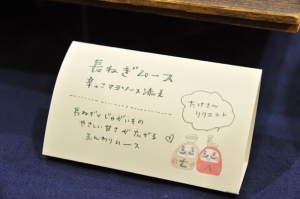 長ねぎムース
辛っこマヨソース添え
長ねぎとじゃがいもの
やさしい甘さが広がる
ふんわりムース
たけさん
リクエスト